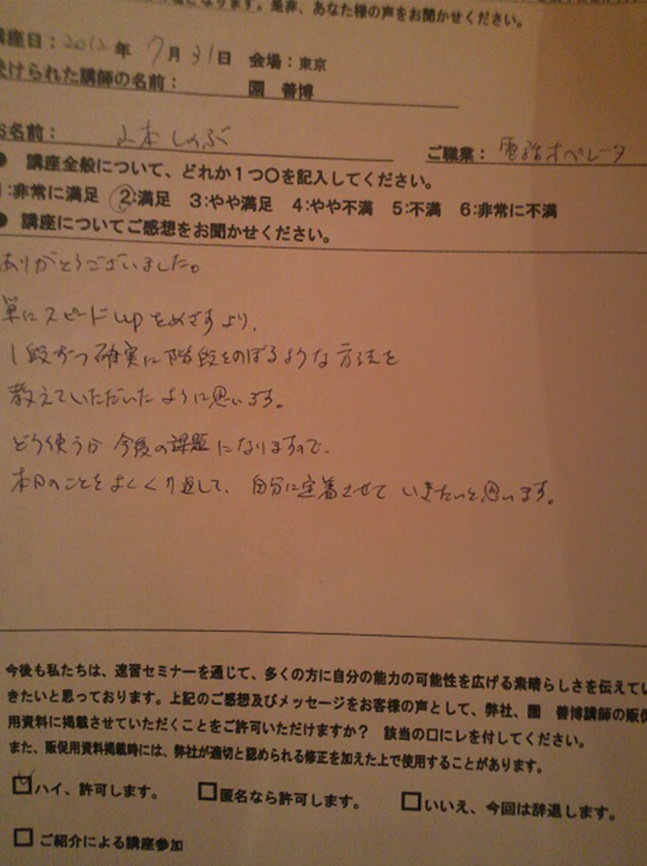 なります。是非、あなた様の声をお聞かせください。
講座日：2012年 7月 31日 会場：東京
受けられた講師の名前： 園 善博
お名前： 本 しのぶ ご職業： 電話オペレータ
● 講座全般について、どれか１つ〇を記入してください。
1：非常に満足 2：満足 3：やや満足 4：やや不満 5：不満 6：非常に不満
● 講座についてご感想をお聞かせください。
ありがとうございました。
単にスピードupをめざすより、
1段ずつ確実に階段をのぼるような方法を
教えていただいたように思います。
どう使うか 今後の課題になりますので、
本日のことをよくくり返して、自分に定着させていきたいと思います。
今後も私たちは、速習セミナーを通じて、多くの方に自分の能力の可能性を広げる素晴らしさを伝えてい
きたいと思っております。上記のご感想及びメッセージをお客様の声として、弊社、園 善博講師の販促
用資料に掲載させていただくことをご許可いただけますか？ 該当の口にレを付してください。
また、販促用資料掲載時には、弊社が適切と認められる修正を加えた上で使用することがあります。
☑ハイ、許可します。 □匿名なら許可します。 □いいえ、今回は辞退します。
□ ご紹介による講座参加